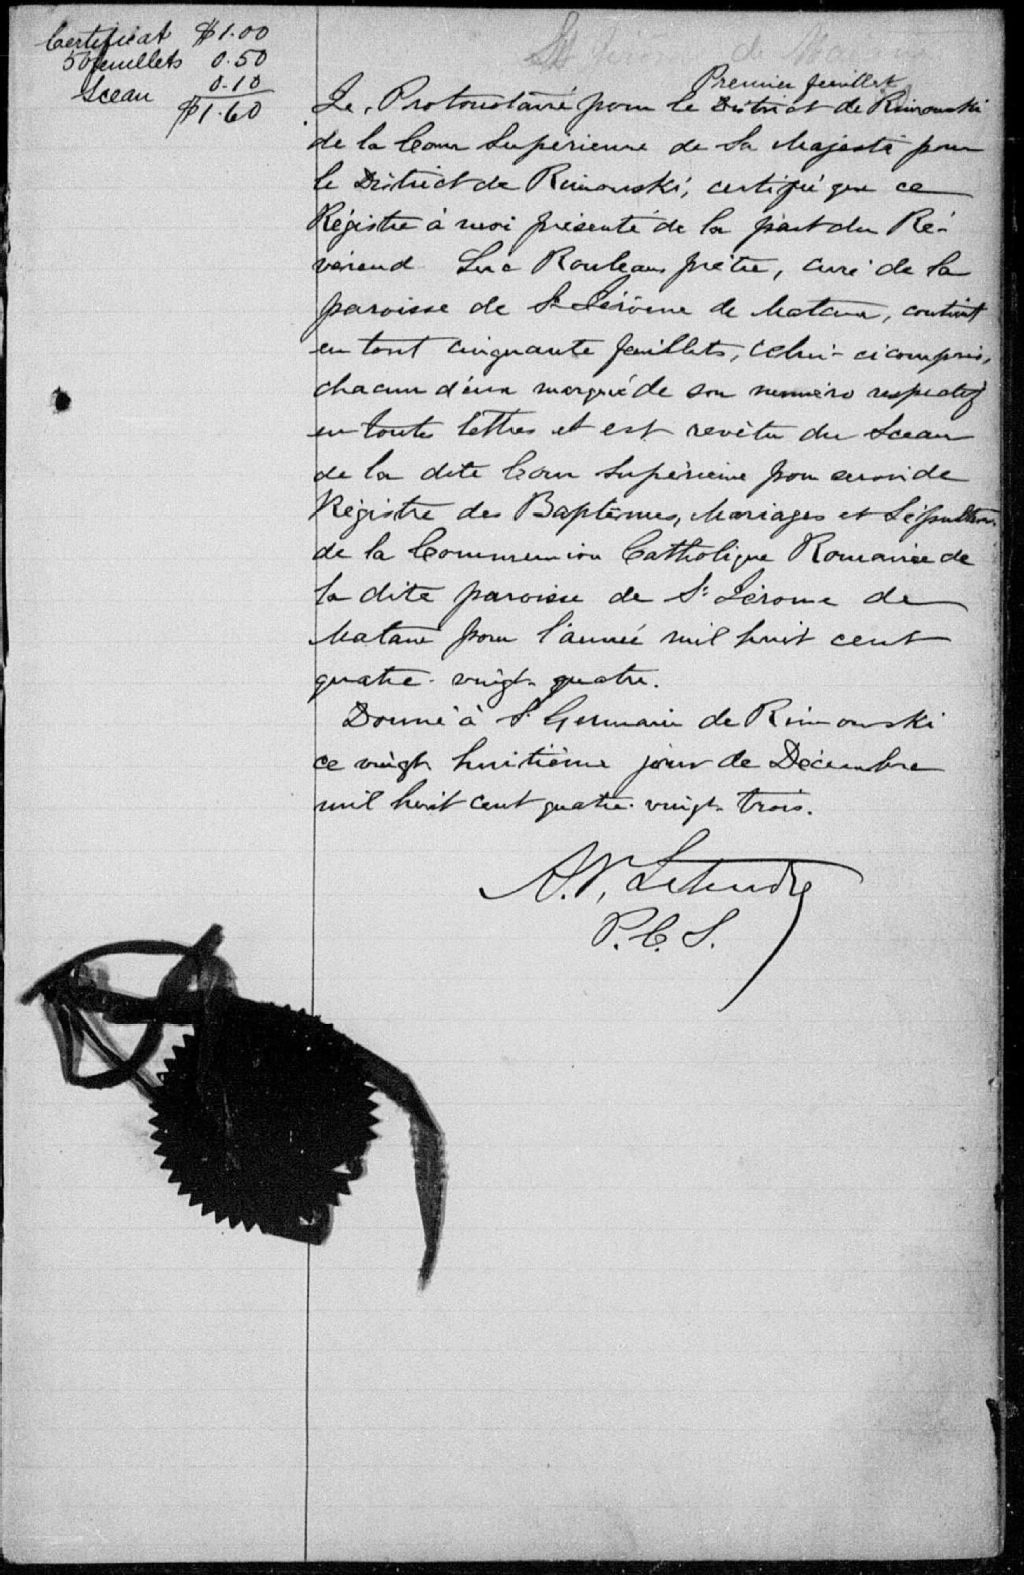 Certificat $1.00
50 feuillets 0.50
Sceau 0.10
$1.60
St Jérome de Matane
Premier feuillet
Le Protonotaire pour le District de Rimouski
de la Cour Supérieure de Sa Majesté pour
le District de Rimouski, certifié que ce
Régistre à moi présenté de la part du Ré-
vérend Luc Rouleau prêtre, curé de la
paroisse de St Jérôme de Matane, contient
en tout cinquante feuillets, celui-ci compris,
chacun d'eux marqué de son numéro respectif
en toutes lettres et est revêtu du Sceau
de la dite Cour Supérieure pour servir de
Régistre des Baptêmes, Mariages et Sépultures
de la Communion Catholique Romaine de
la dite paroisse de St Jérome de
Matane pour l'année mil huit cent
quatre-vingt-quatre.
Donné à St Germain de Rimouski
ce vingt huitième jour de Décembre
mil huit cent quatre-vingt-trois.
A.P. Letendre
P.C.S.